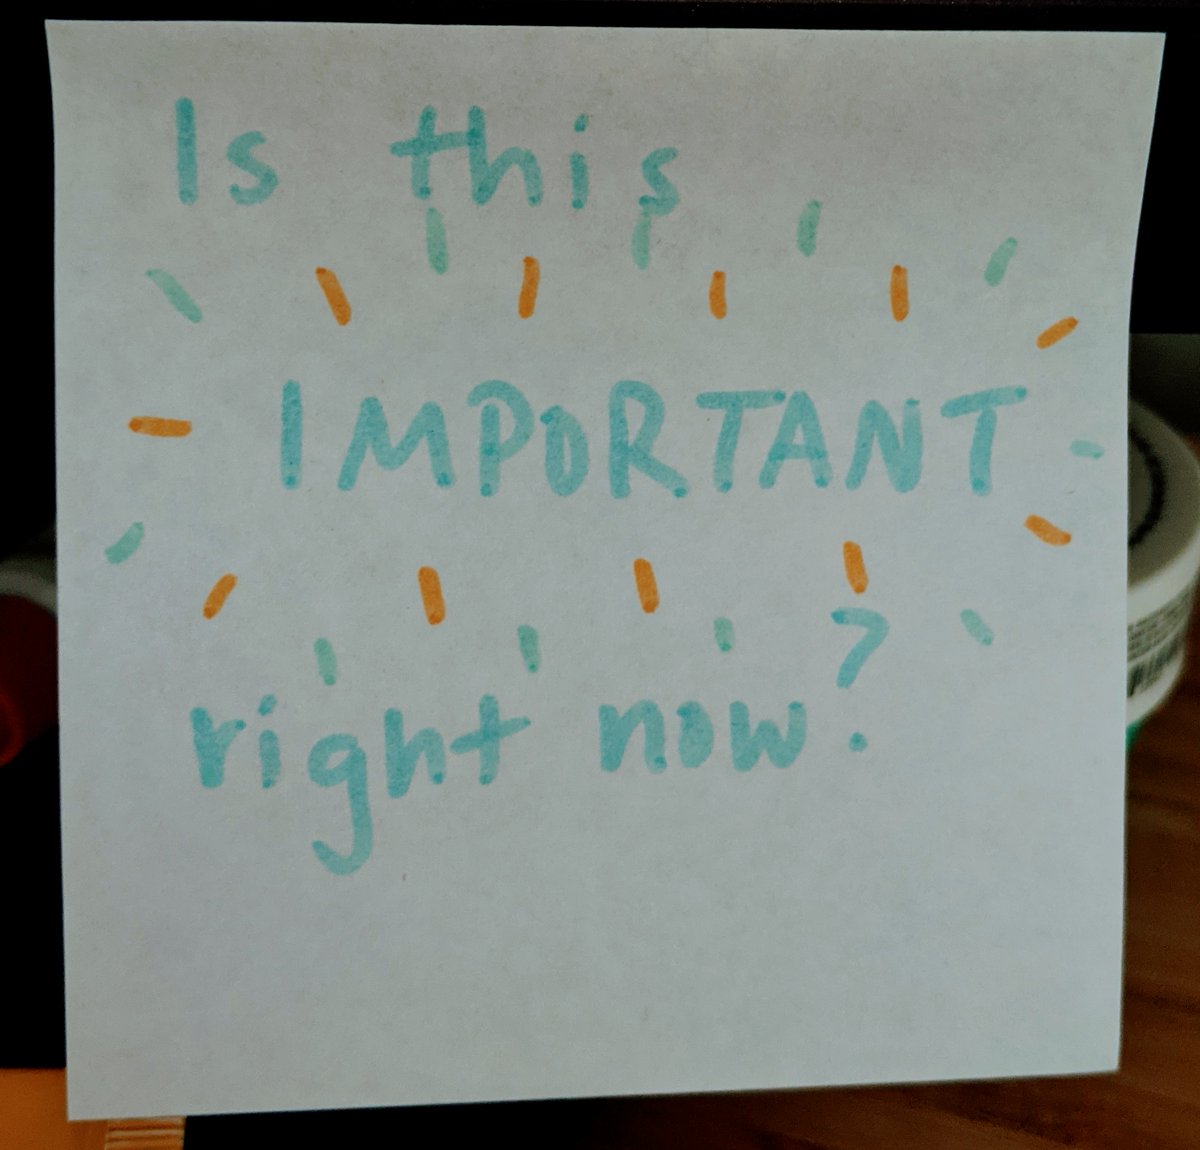 Is this
IMPORTANT
right now?